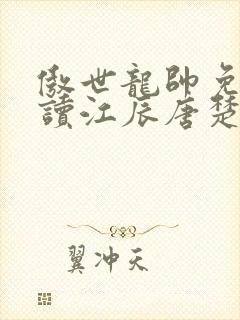 傲世龍帥免
讀江辰唐楚
翼冲天